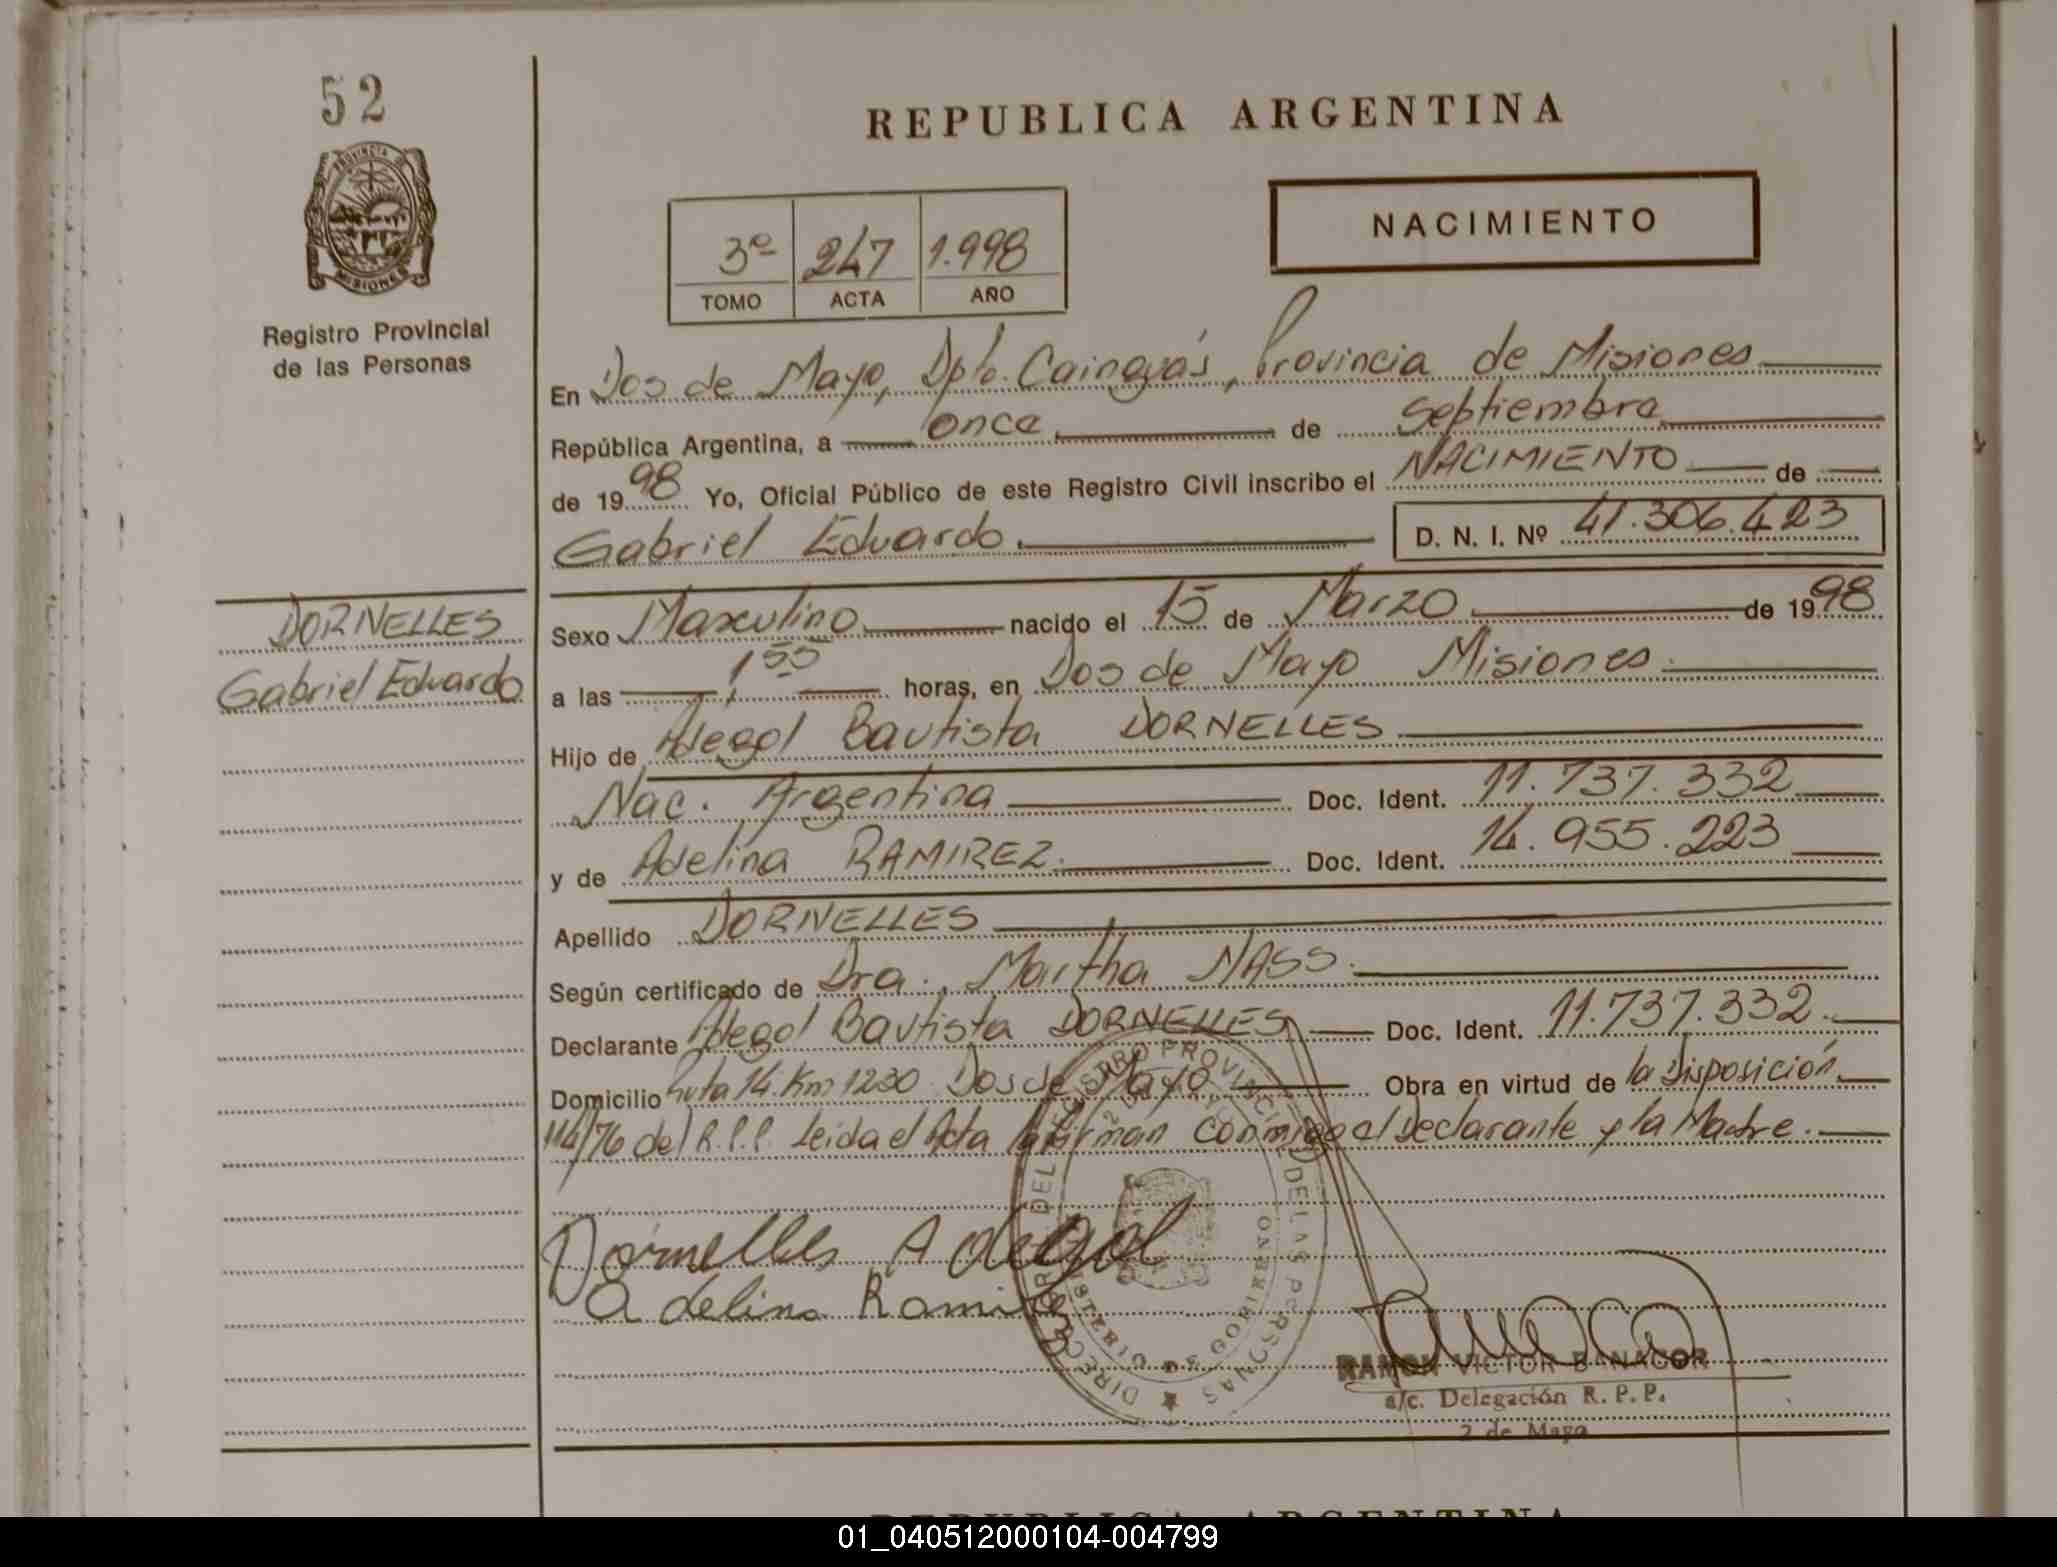 52
PROVINCIA DE
MISIONES
Registro Provincial
de las Personas
REPUBLICA ARGENTINA
3º 247 1.998
TOMO ACTA AÑO
NACIMIENTO
En Dos de Mayo, Dpto. Cainguás, Provincia de Misiones
República Argentina, a once de Septiembre
de 1998 Yo, Oficial Público de este Registro Civil inscribo el NACIMIENTO de
Gabriel Eduardo. D. N. I. Nº 41.306.423
DORNELLES
Gabriel Eduardo
Sexo Masculino nacido el 15 de Marzo de 1998
a las 1,55 horas, en Dos de Mayo Misiones.
Hijo de Adegol Bautista DORNELLES
Nac. Argentina Doc. Ident. 11.737.332
y de Adelina RAMIREZ. Doc. Ident. 14.955.223
Apellido DORNELLES
Según certificado de Dra. Martha NASS.
Declarante Adegol Bautista DORNELLES Doc. Ident. 11.737.332.
Domicilio Ruta 14 Km 1230 Dos de Mayo Obra en virtud de la Disposición
114/76 del R.P.P. Leida el Acta la firman conmigo el Declarante y la Madre.
Dornelles Adegol
Adelina Ramirez
DIRECC. GRAL. DEL REGISTRO PROVINCIAL DE LAS PERSONAS
RAMON VICTOR BANACOR
a/c. Delegación R. P. P.
2 de Mayo
REPUBLICA ARGENTINA
01_040512000104-004799